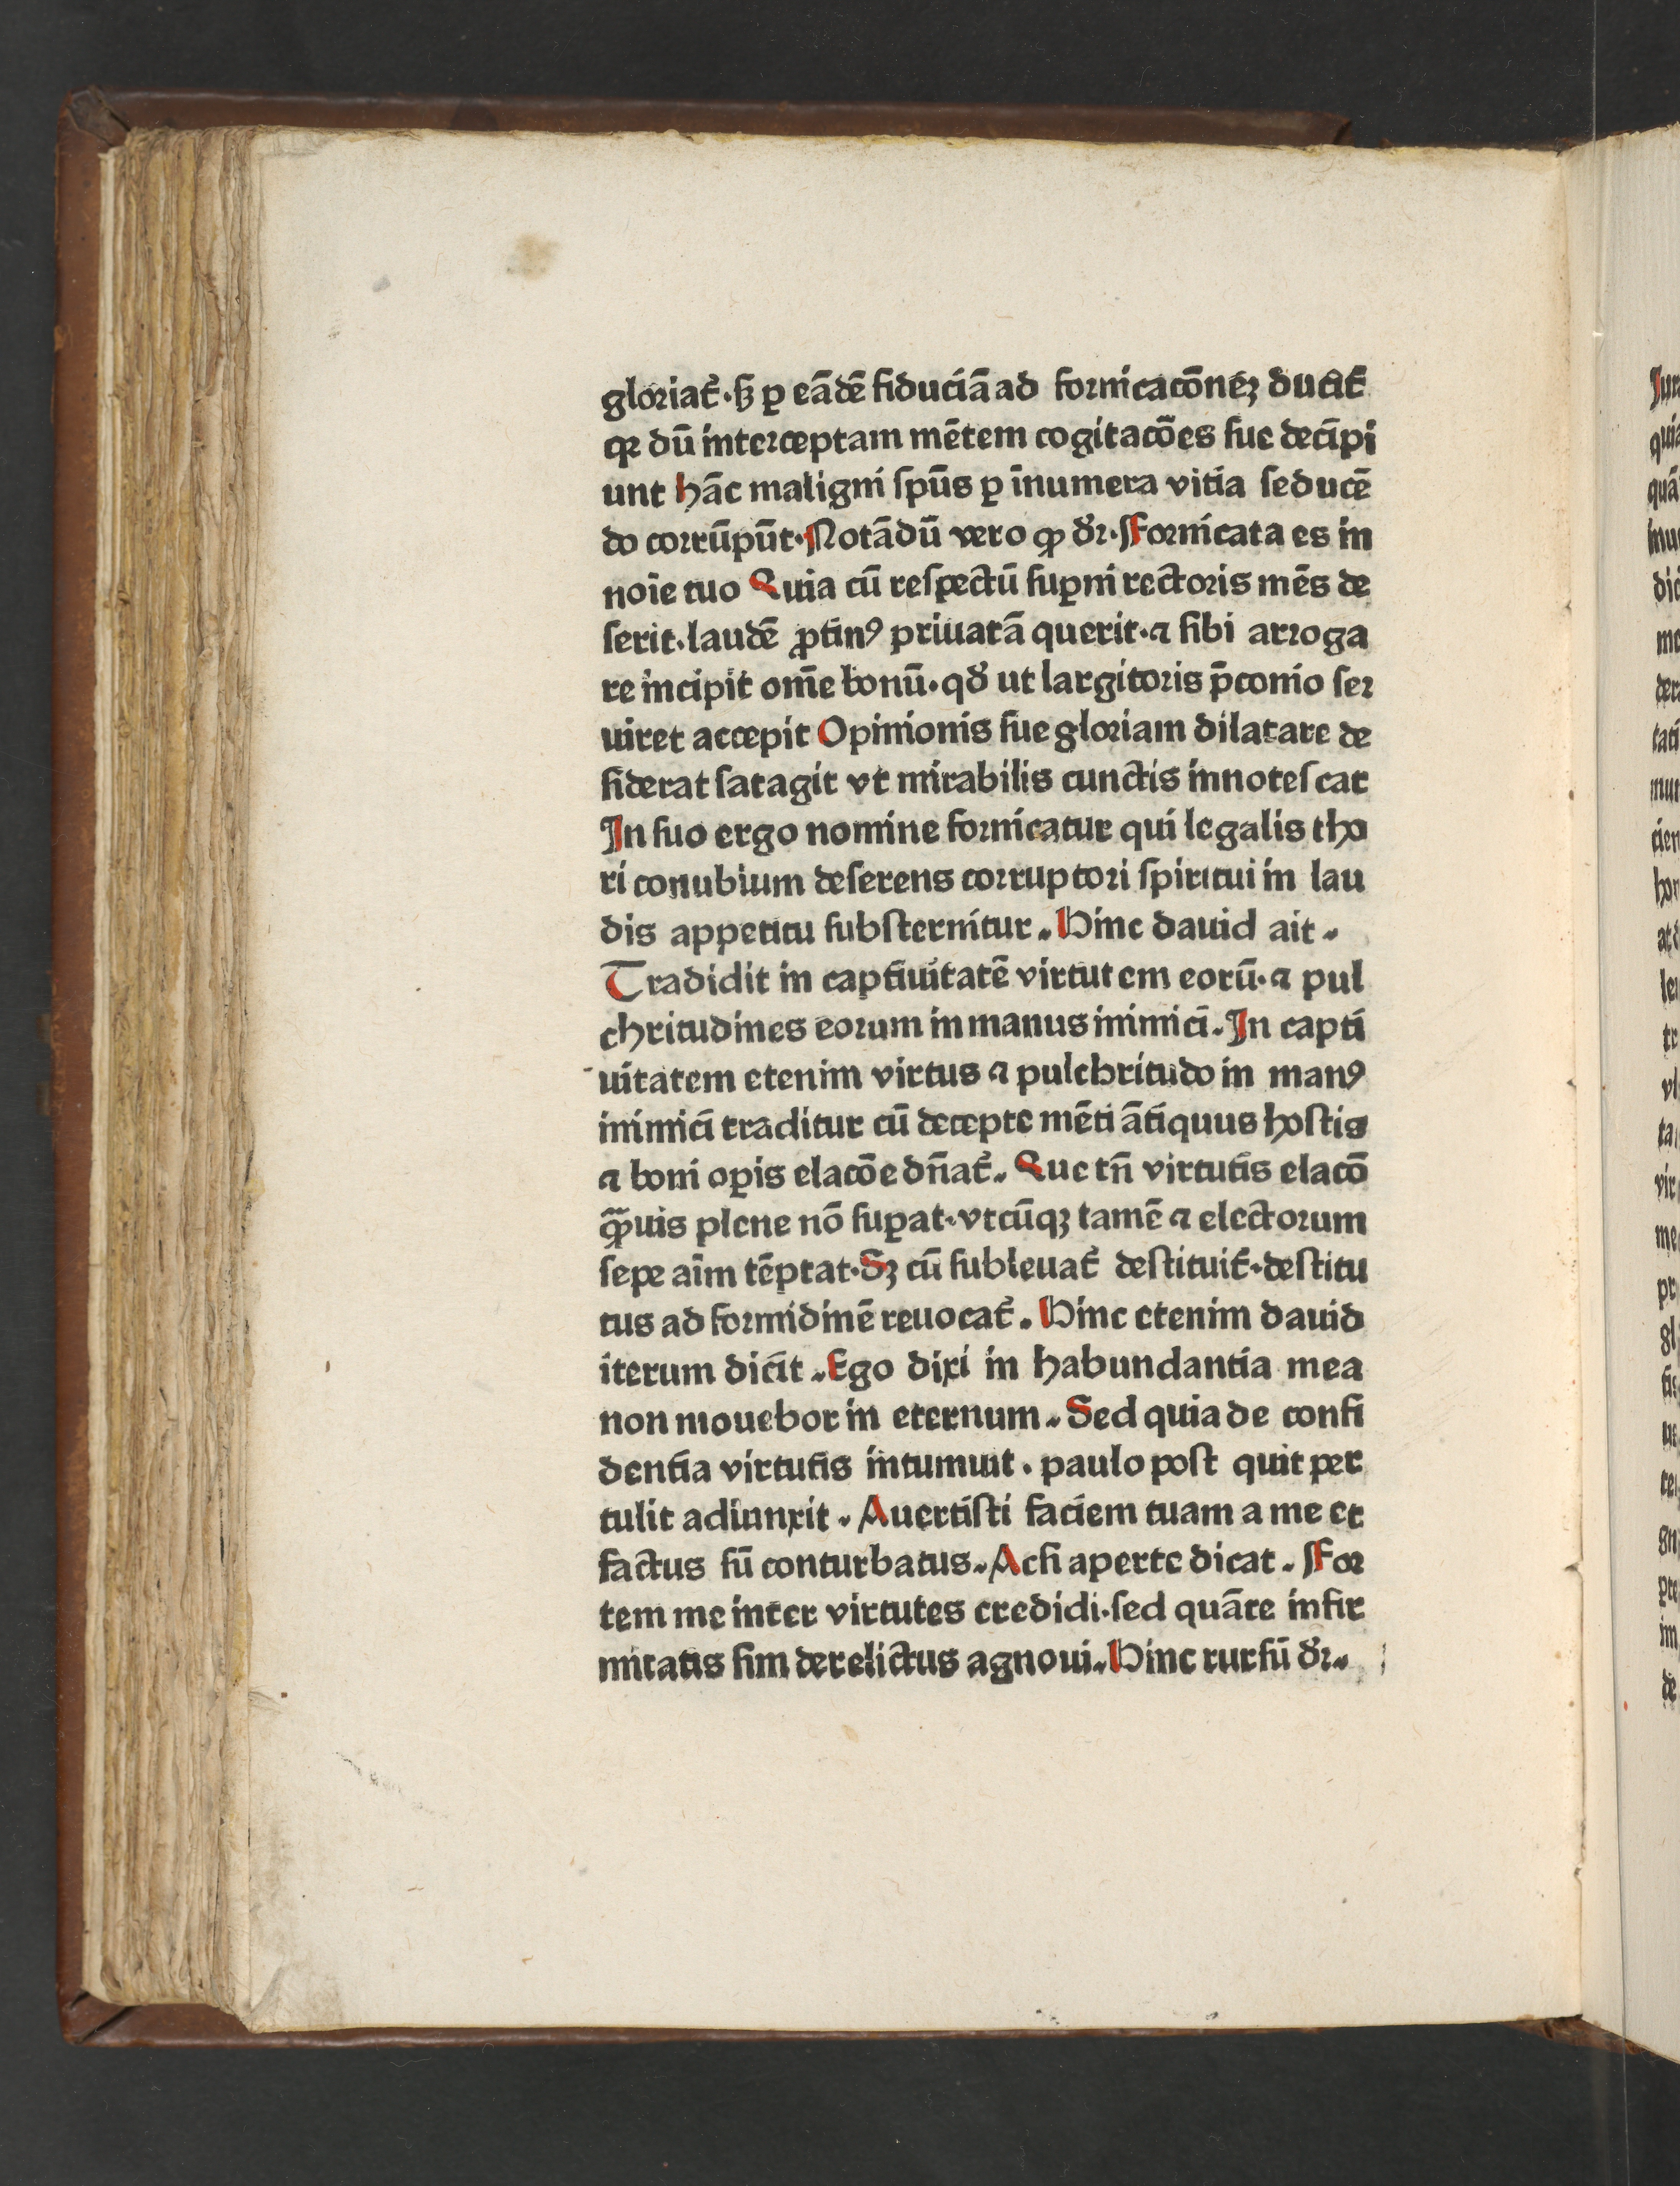 gloriat᷑·sꝫ ꝑ eādē fiduciā ad fornicacōneꝫ ducit᷑
qꝛ dū interceptam mētem cogitacōes sue decipi
unt hāc maligni spūs ꝑ īnumera vitia seducē
do corrūpūt·Notādū vero ꝙ dr̄·Fornicata es in
noīe tuo Quia cū respectū suꝑni rectoris mēs de
serit·laudē ꝓtinꝰ priuatā querit·⁊ sibi arroga
re incipit om̄e bonū·qd̄ ut largitoris p̄conio ser
uiret accepit Opinionis sue gloriam dilatare de
siderat satagit vt mirabilis cunctis innotescat
In suo ergo nomine fornicatur qui legalis tho
ri conubium deserens corruptori spiritui in lau
dis appetitu substernitur. Hinc dauid ait.
Tradidit in captiuitatē virtutem eorū·⁊ pul
chritudines eorum in manus inimici. In capti
uitatem etenim virtus ⁊ pulchritudo in manꝰ
inimici traditur cū decepte mēti ātiquus hostis
⁊ boni oꝑis elacōe dn̄at᷑. Que tn̄ virtutis elacō
ꝙ̄uis plene nō suꝑat·vtcūqꝫ tamē ⁊ electorum
sepe aīm tēptat·Sꝫ cū subleuat᷑ destituit᷑·destitu
tus ad formidinē reuocat᷑. Hinc etenim dauid
iterum dicit. Ego dixi in habundantia mea
non mouebor in eternum. Sed quia de confi
dentia virtutis intumuit. paulo post quit per
tulit adiunxit. Auertisti faciem tuam a me et
factus sū conturbatus. Acsi aperte dicat. For
tem me inter virtutes credidi·sed quāte infir
mitatis sim derelictus agnoui. Hinc rursū dr̄.